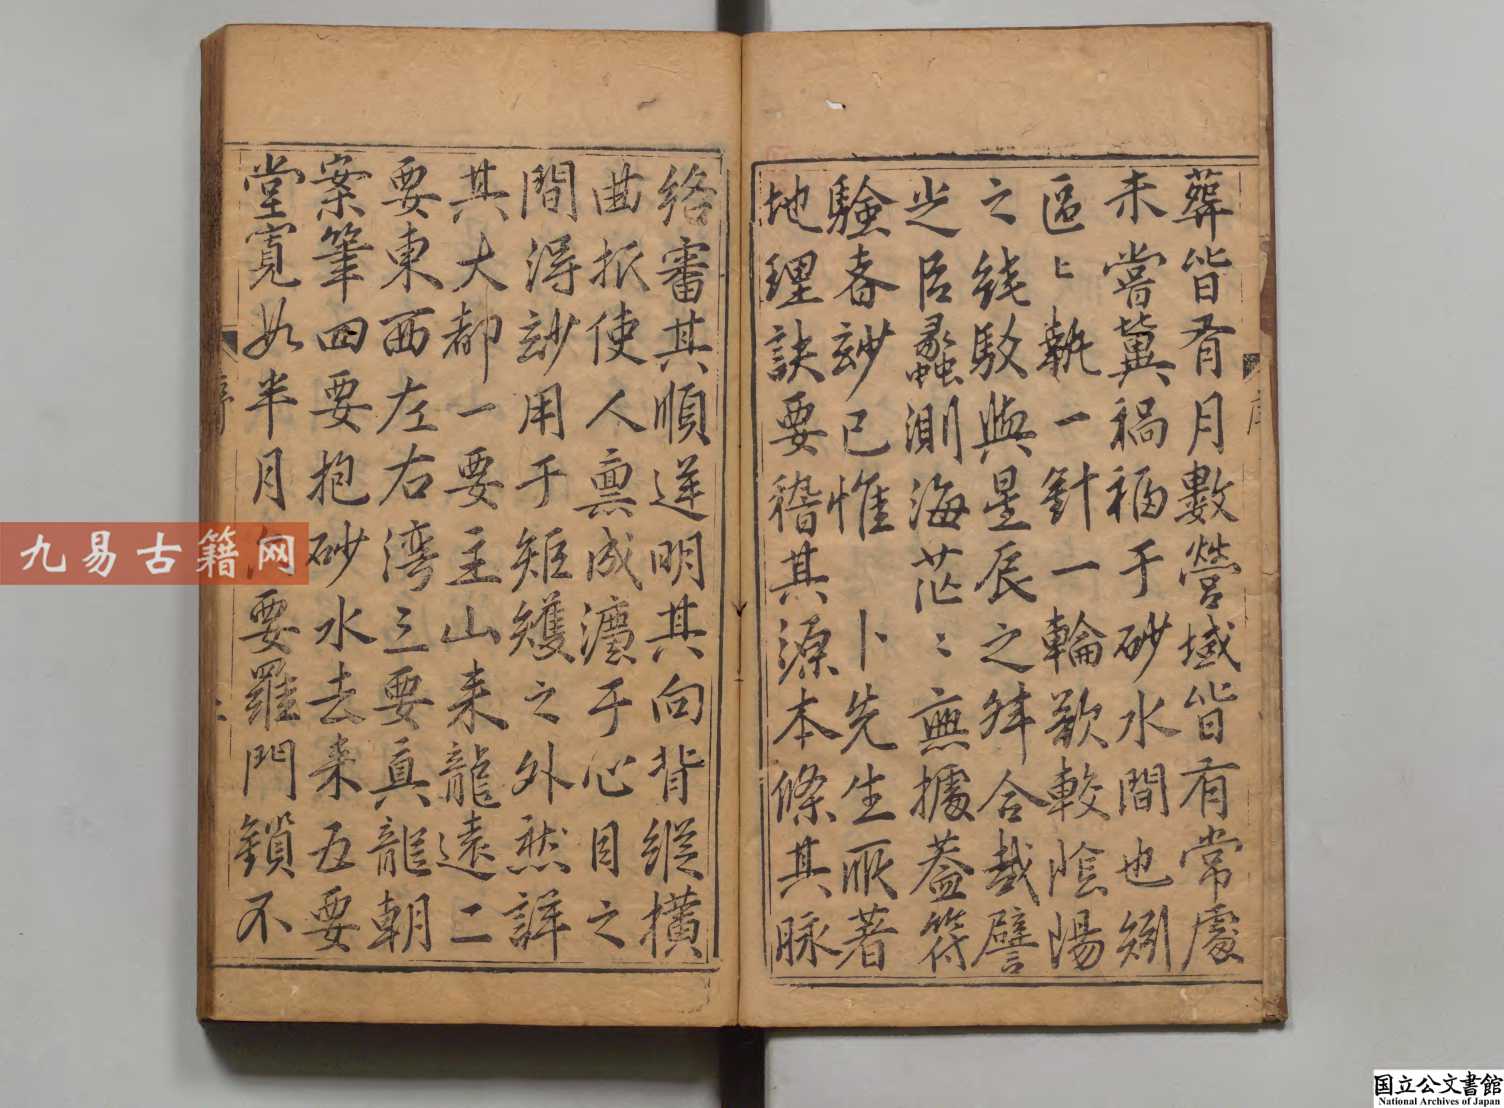 葬皆有月數營域皆有常處
未嘗冀禍福于砂水間也矧
區〻執一針一輪欲較陰陽
之綫馭與星辰之舛合哉譬
之臣蠡測海茫〻無據蓋符
驗春玅已惟卜先生所著
地理訣要稽其源本條其脉
絡審其順逆明其向背縱橫
曲折使人禀成灋于心目之
間得玅用于矩矱之外然詳
其大都一要主山来龍遠二
要東西左右湾三要真龍朝
案筆四要抱砂水去来五要
堂寬如半月要羅門鎖不
序
九易古籍网
国立公文書館
National Archives of Japan